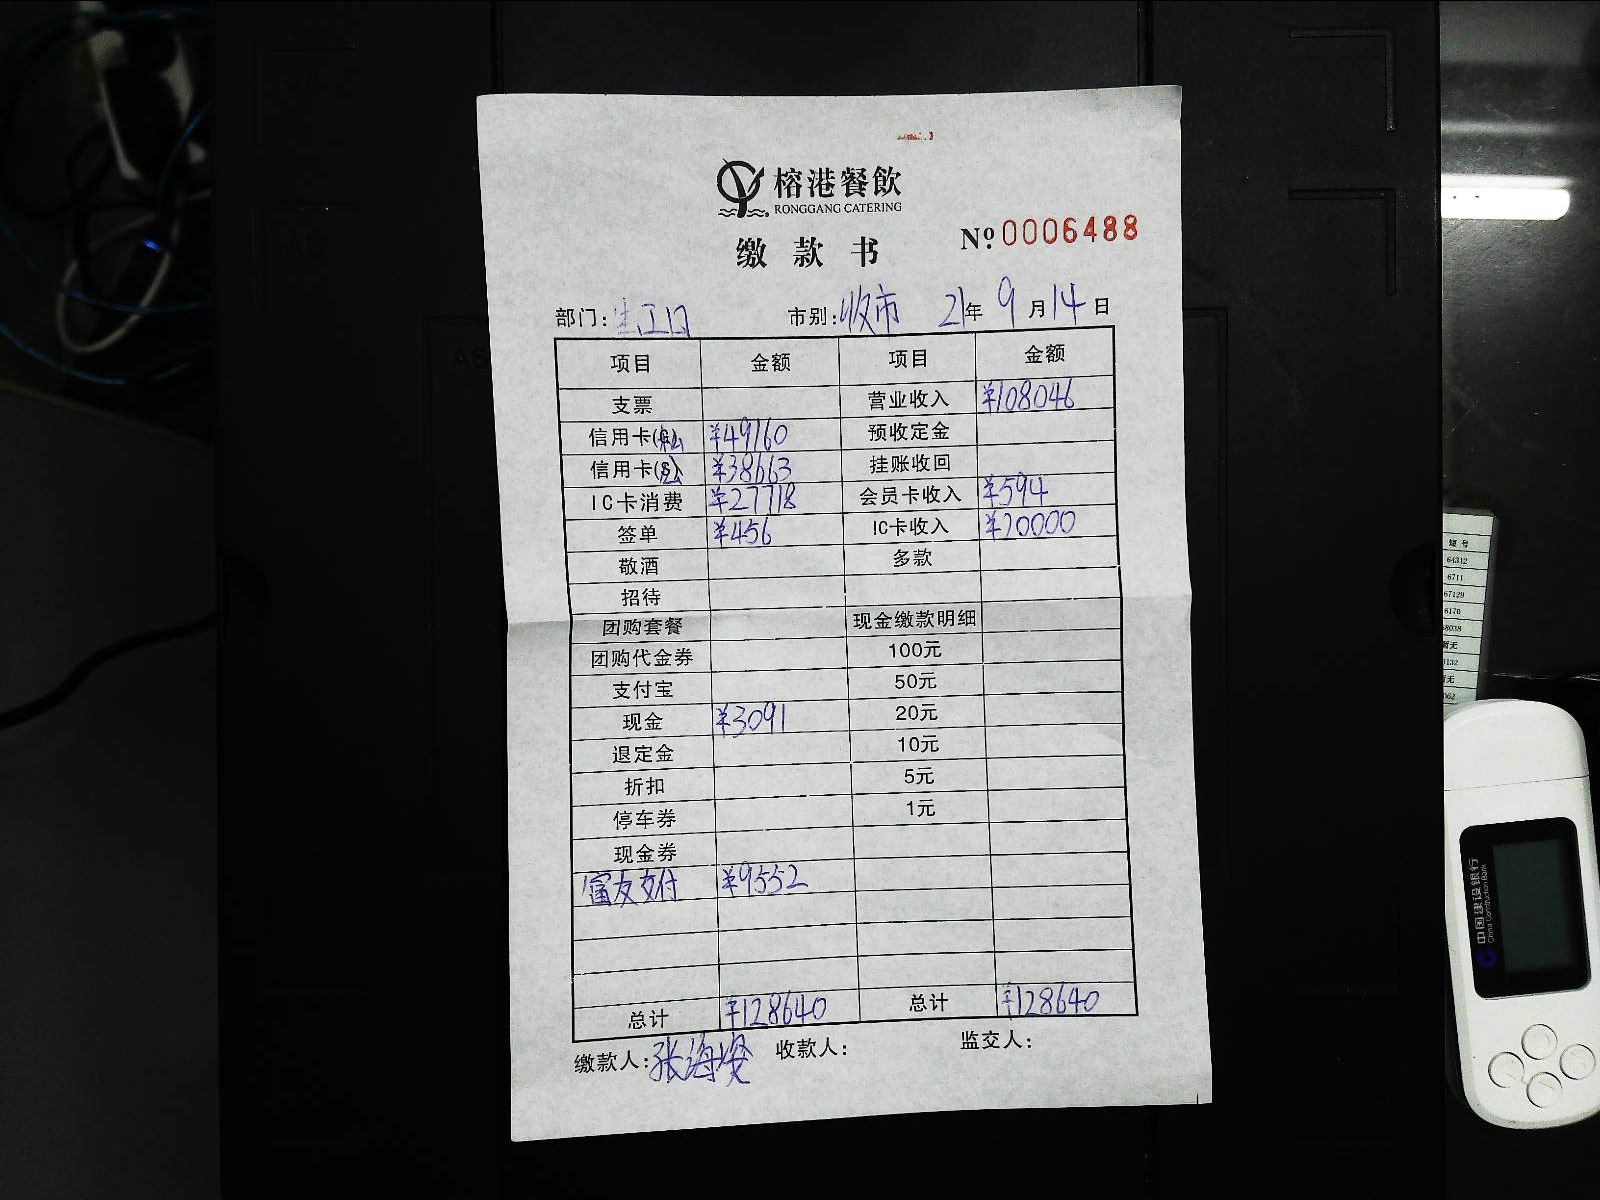 榕港餐飲
RONGGANG CATERING
缴款书
Nº 0006488
部门: 市别:收市 21年9月14日
项目 金额 项目 金额
支票 营业收入 ¥108046
信用卡 ¥49160 预收定金
信用卡 ¥38663 挂账收回
IC卡消费 ¥27718 会员卡收入 ¥594
签单 ¥456 IC卡收入 ¥20000
敬酒 多款
招待
团购套餐 现金缴款明细
团购代金券 100元
支付宝 50元
现金 ¥3091 20元
退定金 10元
折扣 5元
停车券 1元
现金券
富友支付 ¥9552
总计 ¥128640 总计 ¥128640
缴款人:张海 收款人: 监交人:
短号
64312
6711
67129
6170
中国建设银行
China Construction Bank